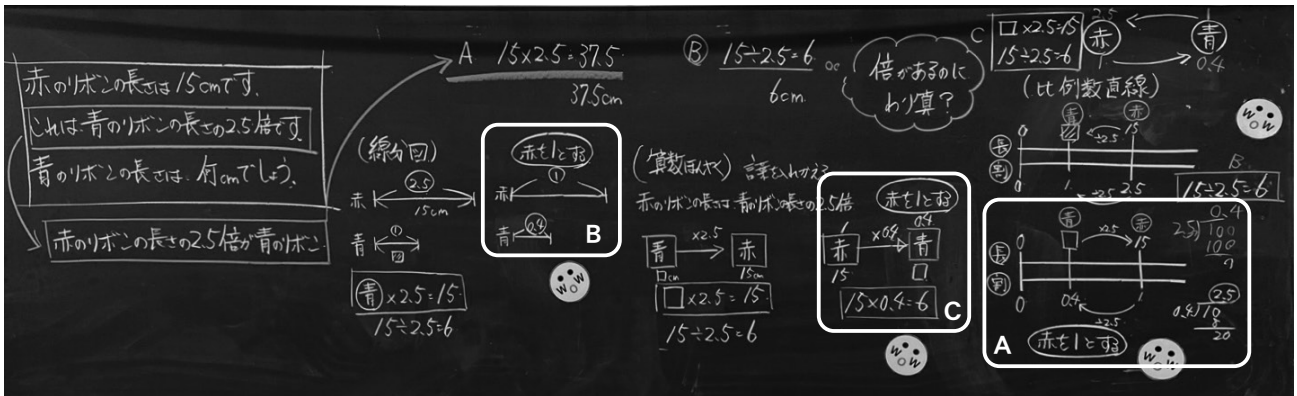 赤のリボンの長さは15cmです。
これは、青のリボンの長さの2.5倍です。
青のリボンの長さは、何cmでしょう。
赤のリボンの長さの2.5倍が青のリボン
A 15×2.5=37.5
37.5cm
(線分図)
赤
2.5
15cm
青
①
□
青×2.5=15
15÷2.5=6
赤を1とする
赤
①
青
0.4
B
W W W
B 15÷2.5=6
6cm
倍があるのに
わり算?
(算数ほんやく) 言葉を入れかえる
赤のリボンの長さは、青のリボンの長さの2.5倍
青 ×2.5 赤
□cm 15cm
□×2.5=15
15÷2.5=6
赤を1とする
1 0.4
赤 ×0.4 青
15 □
15×0.4=6
C
W W W
C
□×2.5=15
15÷2.5=6
2.5 1
赤 青
1 0.4
(比例数直線)
青 赤
÷2.5
0 15
長
割
0 1 2.5
÷2.5
W W W
B
15÷2.5=6
青 赤
0 □ ×2.5 15
長
割
0 0.4 1
÷2.5
赤を1とする
A
0.4
2.5)100
100
0
2.5
0.4)10
8
20
W W W